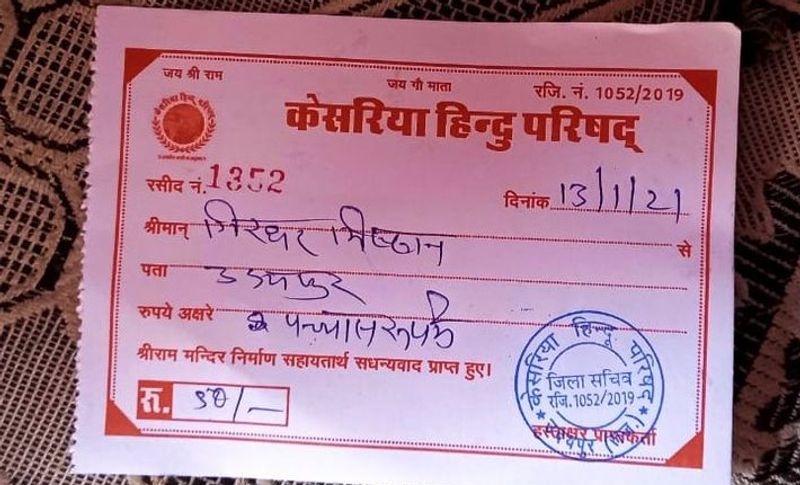 जय श्री राम
जय गौ माता
रजि. नं. 1052/2019
केसरिया हिन्दु परिषद्
रसीद नं. 1352
दिनांक 13/1/21
श्रीमान् गिरधर मिष्ठान से
पता उदयपुर
रुपये अक्षरे पच्चास रुपये
श्रीराम मन्दिर निर्माण सहायतार्थ सधन्यवाद प्राप्त हुए।
रु. 50/-
केसरिया हिन्दू परिषद्
जिला सचिव
रजि. 1052/2019
हस्ताक्षर प्राप्तकर्ता